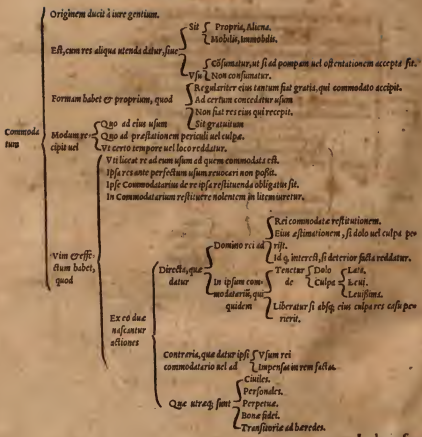 Originem ducit à iure gentium.
Sit Propria, Aliena.
Mobilis, Immobilis.
Est, cum res aliqua utenda datur, siue
Cōsumatur, ut si ad pompam uel ostentationem accepta sit.
Vsu Non consumatur.
Formam habet & proprium, quod
Regulariter eius tantum fiat gratis, qui commodato accipit.
Ad certum concedatur usum
Non fiat res eius qui recepit.
Sit gratuitum
Commoda
tum
Modum re-
cipit uel
Quo ad eius usum
Quo ad præstationem periculi uel culpæ.
Vt certo tempore uel loco reddatur.
Vim & effe-
ctum habet,
quod
Vti liceat re ad eum usum ad quem commodata est.
Ipsa res ante perfectum usum reuocari non possit.
Ipse Commodatarius de re ipsa restituenda obligatus sit.
In Commodatarium restituere nolentem in litem iuretur.
Ex eo duæ
nascantur
actiones
Directa, quæ
datur
Domino rei ad
Rei commodatæ restitutionem.
Eius æstimationem, si dolo uel culpa pe
rijt.
Id q, interest, si deterior facta reddatur.
In ipsum com-
modatariū, qui
quidem
Tenetur
de
Dolo
Culpa
Lata.
Leui.
Leuissima.
Liberatur si absq; eius culpa res casu pe
rierit.
Contraria, quæ datur ipsi
commodatario uel ad
Vsum rei
Impensas in rem factas.
Quæ utræq; sunt
Ciuiles.
Personales.
Perpetuæ.
Bonæ fidei.
Transitoriæ ad hæredes.